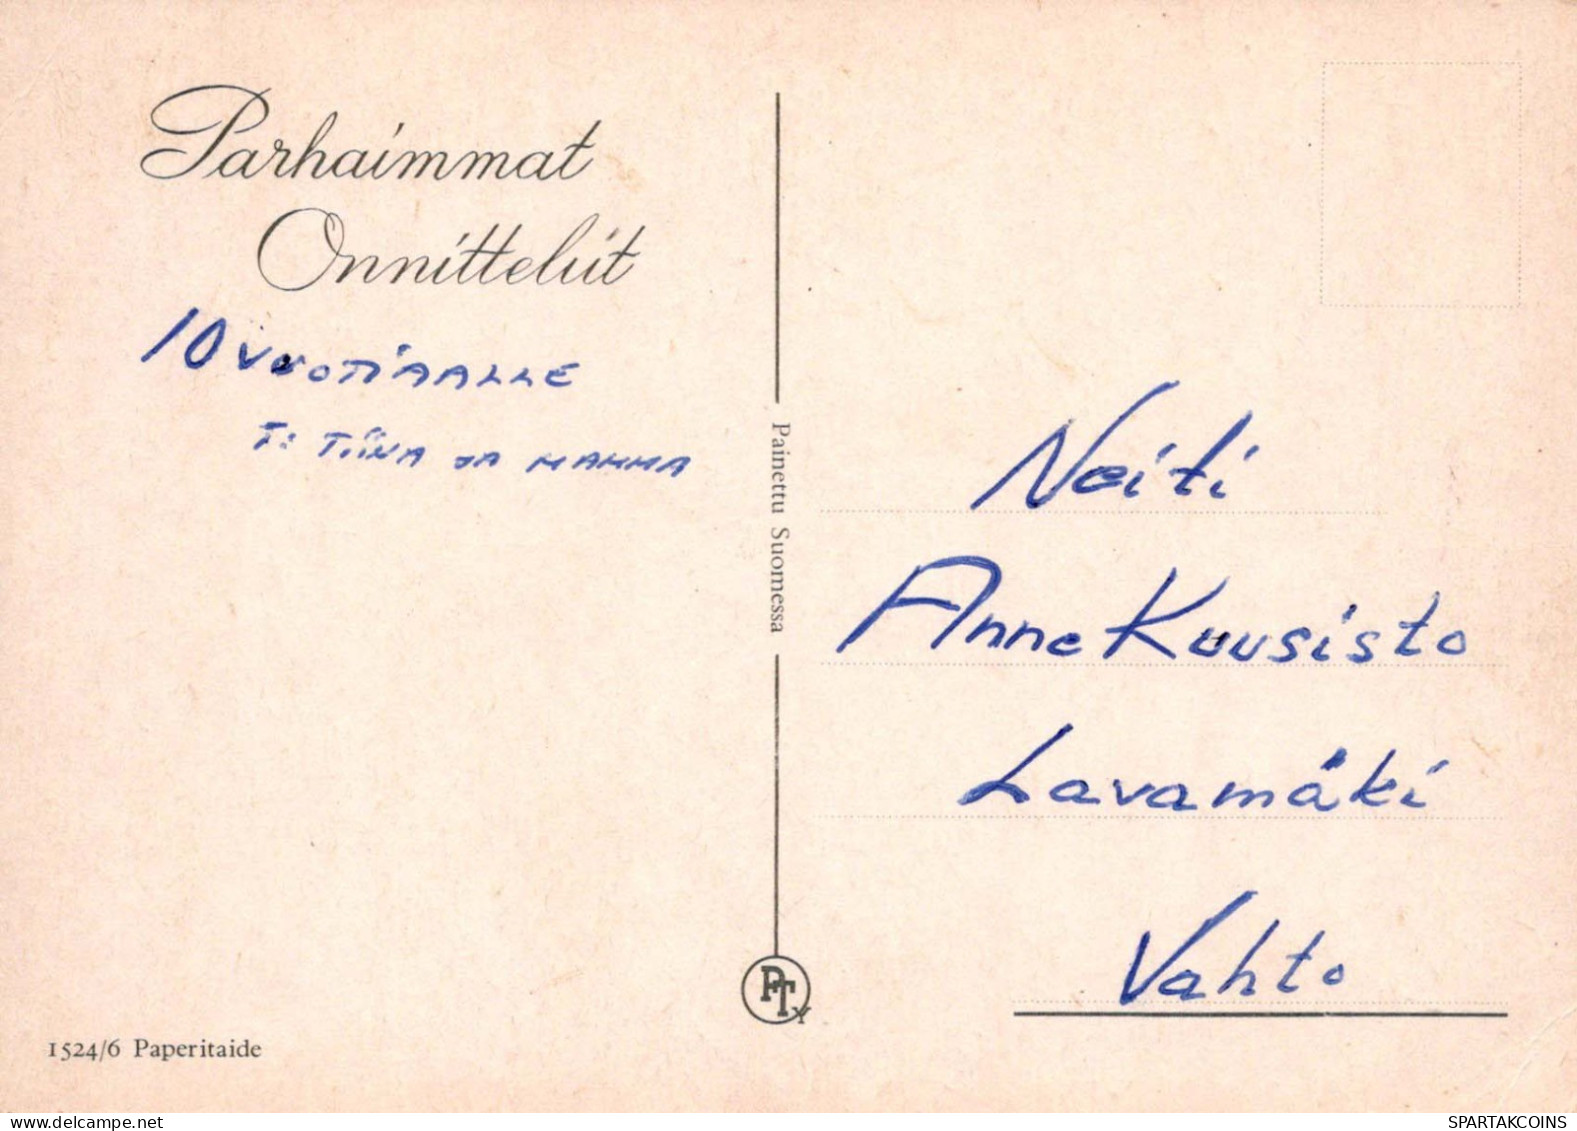 Parhaimmat
Onnittelut
10 VUOTIAALLE
T: TIINA JA MAMMA
1524/6 Paperitaide
Painettu Suomessa
PTY
Neiti
Anne Kuusisto
Lavamäki
Vahto
delcampe.net
SPARTAKCOINS